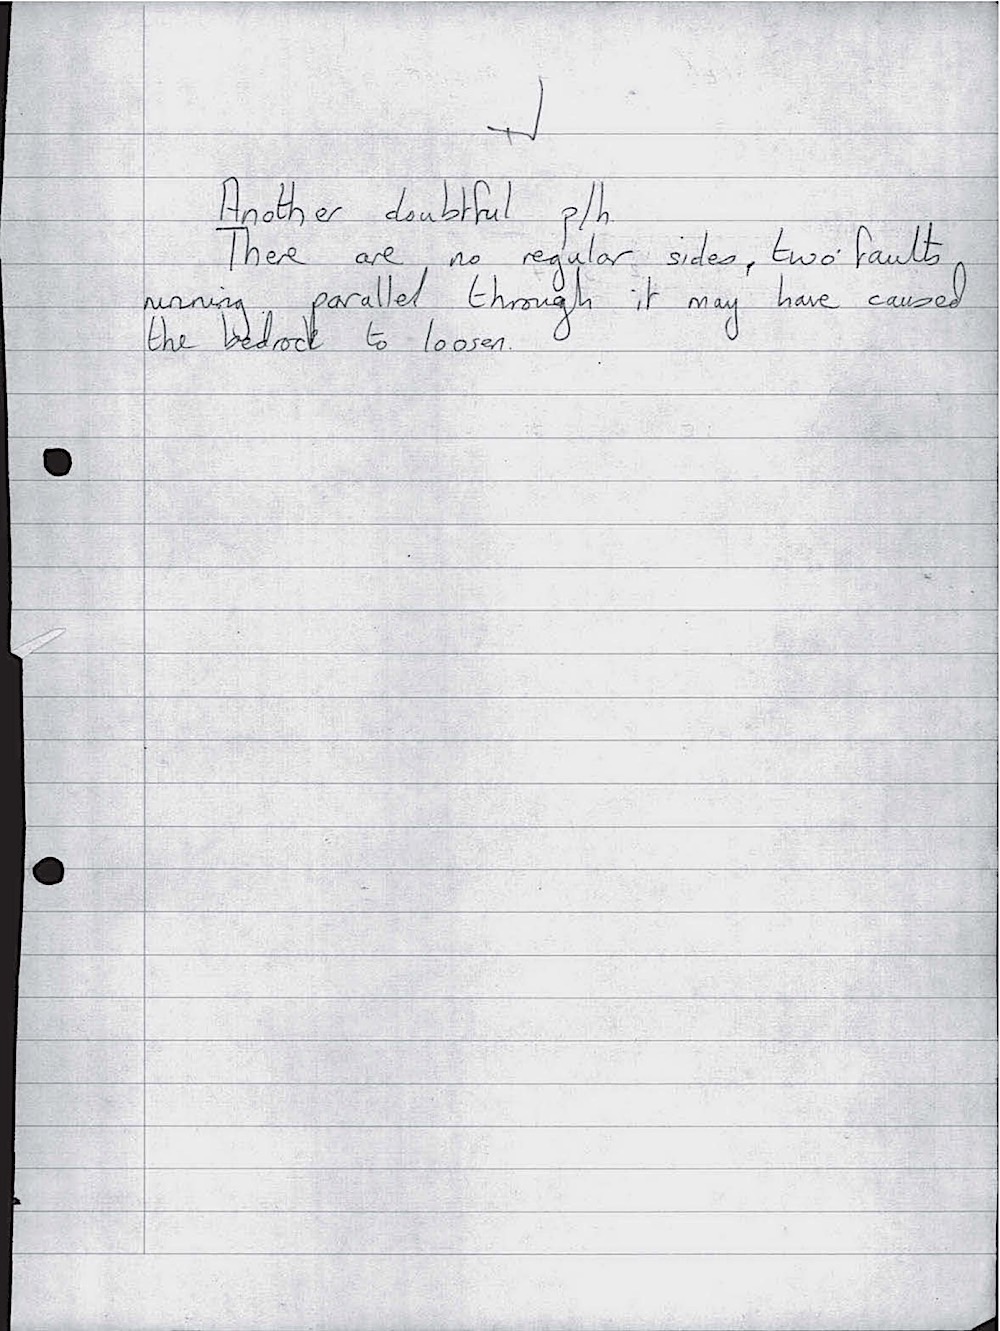 Another doubtful p/h
There are no regular sides, two faults
running parallel through it may have caused
the bedrock to loosen.